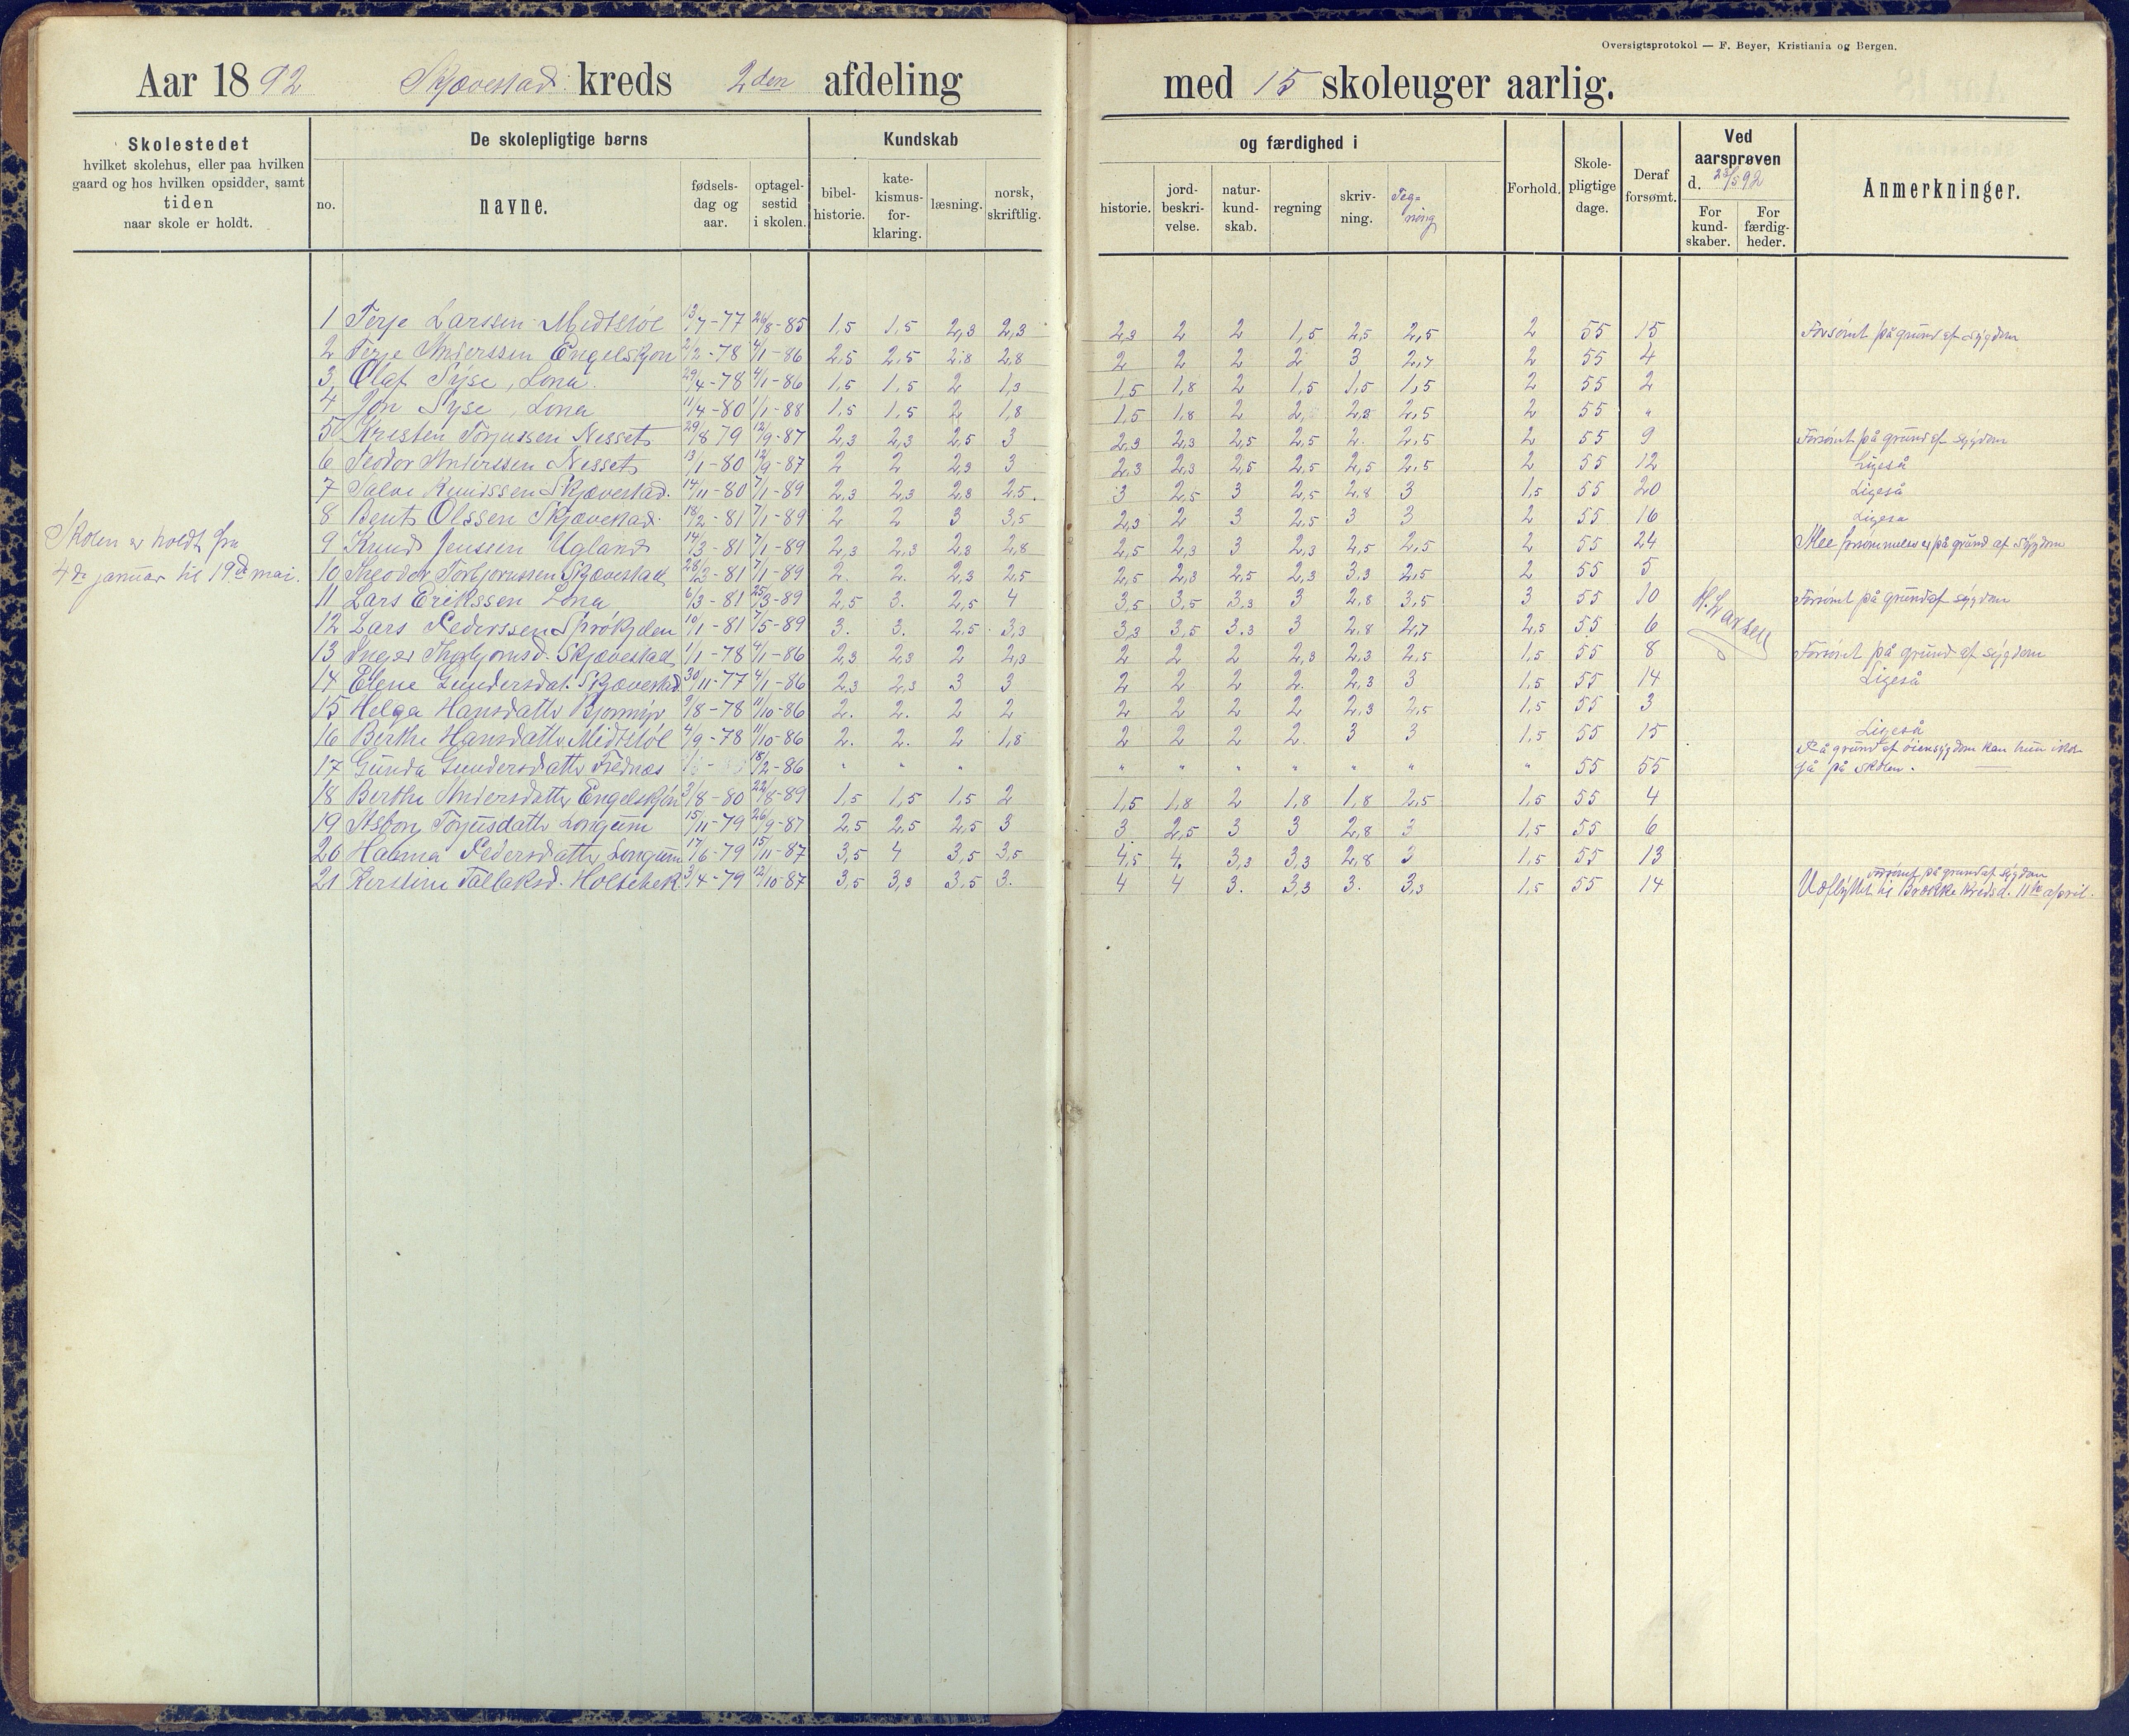 Oversigtsprotokol — F. Beyer, Kristiania og Bergen.
Aar 1892 Skjævestad kreds 2den afdeling med 15 skoleuger aarlig.
Skolestedet
hvilket skolehus, eller paa hvilken
gaard og hos hvilken opsidder, samt
tiden
naar skole er holdt.
De skolepligtige børns
no. navne. fødsels-dag og aar. optagel-sestid i skolen.
Kundskab og færdighed i
bibel-historie. kate-kismus-for-klaring. læsning. norsk, skriftlig. historie. jord-beskri-velse. natur-kund-skab. regning skriv-ning. Teg=ning
Forhold. Skole-pligtige dage. Deraf forsømt.
Ved aarsprøven d. 23/5 92
For kund-skaber. For færdig-heder.
Anmerkninger.
Skolen er holdt fra
4de januar til 19de mai.
1 Terje Larssen Midtstøl 13/7-77 26/8-85 1,5 1,5 2,3 2,3 2,3 2 2 1,5 2,5 2,5 2 55 15 Forsømt på grund af sygdom
2 Terje Anderssen Engelskjøn 2/2-78 4/1-86 2,5 2,5 2,8 2,8 2 2 2 2 3 2,7 2 55 4
3 Olaf Syse, Lona. 29/4-78 4/1-86 1,5 1,5 2 1,3 1,5 1,8 2 1,5 1,5 1,5 2 55 2
4 Jon Syse, Lona 11/4-80 1/1-88 1,5 1,5 2 1,8 1,5 1,8 2 2, 2,3 2,5 2 55 "
5 Kresten Torjussen Nesset 29/8 79 12/9-87 2,3 2,3 2,5 3 2,3 2,3 2,5 2,5 2. 2,5 2 55 9 Forsømt på grund af sygdom
6 Teodor Anderssen Nesset 13/1-80 12/9-87 2 2 2,3 3 2,3 2,3 2,5 2,5 2,5 2,5 2 55 12 Ligeså
7 Salve Knudssen Skjævestad. 14/11-80 7/1-89 2,3 2,3 2,8 2,5. 3 2,5 3 2,5 2,8 3 1,5 55 20 Ligeså
8 Bent Olssen Skjævestad. 18/2-81 7/1-89 2 2 3 3,5 2,3 2 3 2,5 3 3 2 55 16 Ligeså
9 Knud Jenssen Ugland 14/3-81 7/1-89 2,3 2,3 2,3 2,8 2,5 2,3 3 2,3 2,5 2,5 2 55 24 Alle forsømmelser på grund af sygdom
10 Theodor Torbjornssen Skjævestad 28/3-81 7/1-89 2. 2. 2,3 2,5 2,5 2,3 2,5 2,3 3,3 2,5 2 55 5
11 Lars Erikssen Lona 6/3-81 25/3-89 2,5 3. 2,5 4 3,5 3,5 3,3 3 2,8 3,5 3 55 10 H. Larsen Forsømt på grund af sygdom
12 Lars Pederssen Sprøkjelen 10/1-81 7/5-89 3. 3. 2,5 3,3 3,3 3,5 3.3 3 2.8 2,7 2,5 55 6
13 Inger Thorbjornsd. Skjævestad 1/1-78 4/1-86 2,3 2,3 2 2,3 2 2 2 2,3 2,3 2,5 1,5 55 8 Forsømt på grund af sygdom
14 Elene Gundersdat. Skjævestad. 30/11-77 4/1-86 2,3 2,3 3 3 2 2 2 2. 2,3 3 1,5 55 14 Ligeså
15 Helga Hansdatter Bjormyr 9/8-78 11/10-86 2. 2. 2 2 2 2 2 2 2,3 2,5 1,5 55 3
16 Berthe Hansdatter Midtstøl 4/9-78 11/10-86 2. 2. 2 1,8 2 2 2 2. 3 3 1,5 55 15 Ligeså
17 Gunda Gundersdatter Frednæs 18/2-86 " " " " " " " " " " 55 55 På grund af øiensygdom kan hun ikke
gå på skolen.
18 Berthe Andersdatter Engelskjøn 3/8-80 22/8-89 1,5 1,5 1,5 2 1,5 1,8 2 1,8 1,8 2,5 1,5 55 4
19 Asbor Torjusdatter Longum 15/11-79 26/9-87 2,5 2,5 2,5 3 3 2,5 3 3 2,8 3 1,5 55 6
20 Pedersdatter Longum 17/6-79 15/11-87 3,5 4 3,5 3,5 4,5 4. 3,3 3,3 2,8 3 1,5 55 13
21 Kerstine Tallaksd. 3/4-79 12/10-87 3,5 3,3 3,5 3. 4 4 3. 3,3 3. 3,3 1,5 55 14 Forsømt på grund af sygdom
Udflyttet til Brække kreds d. 11te april.